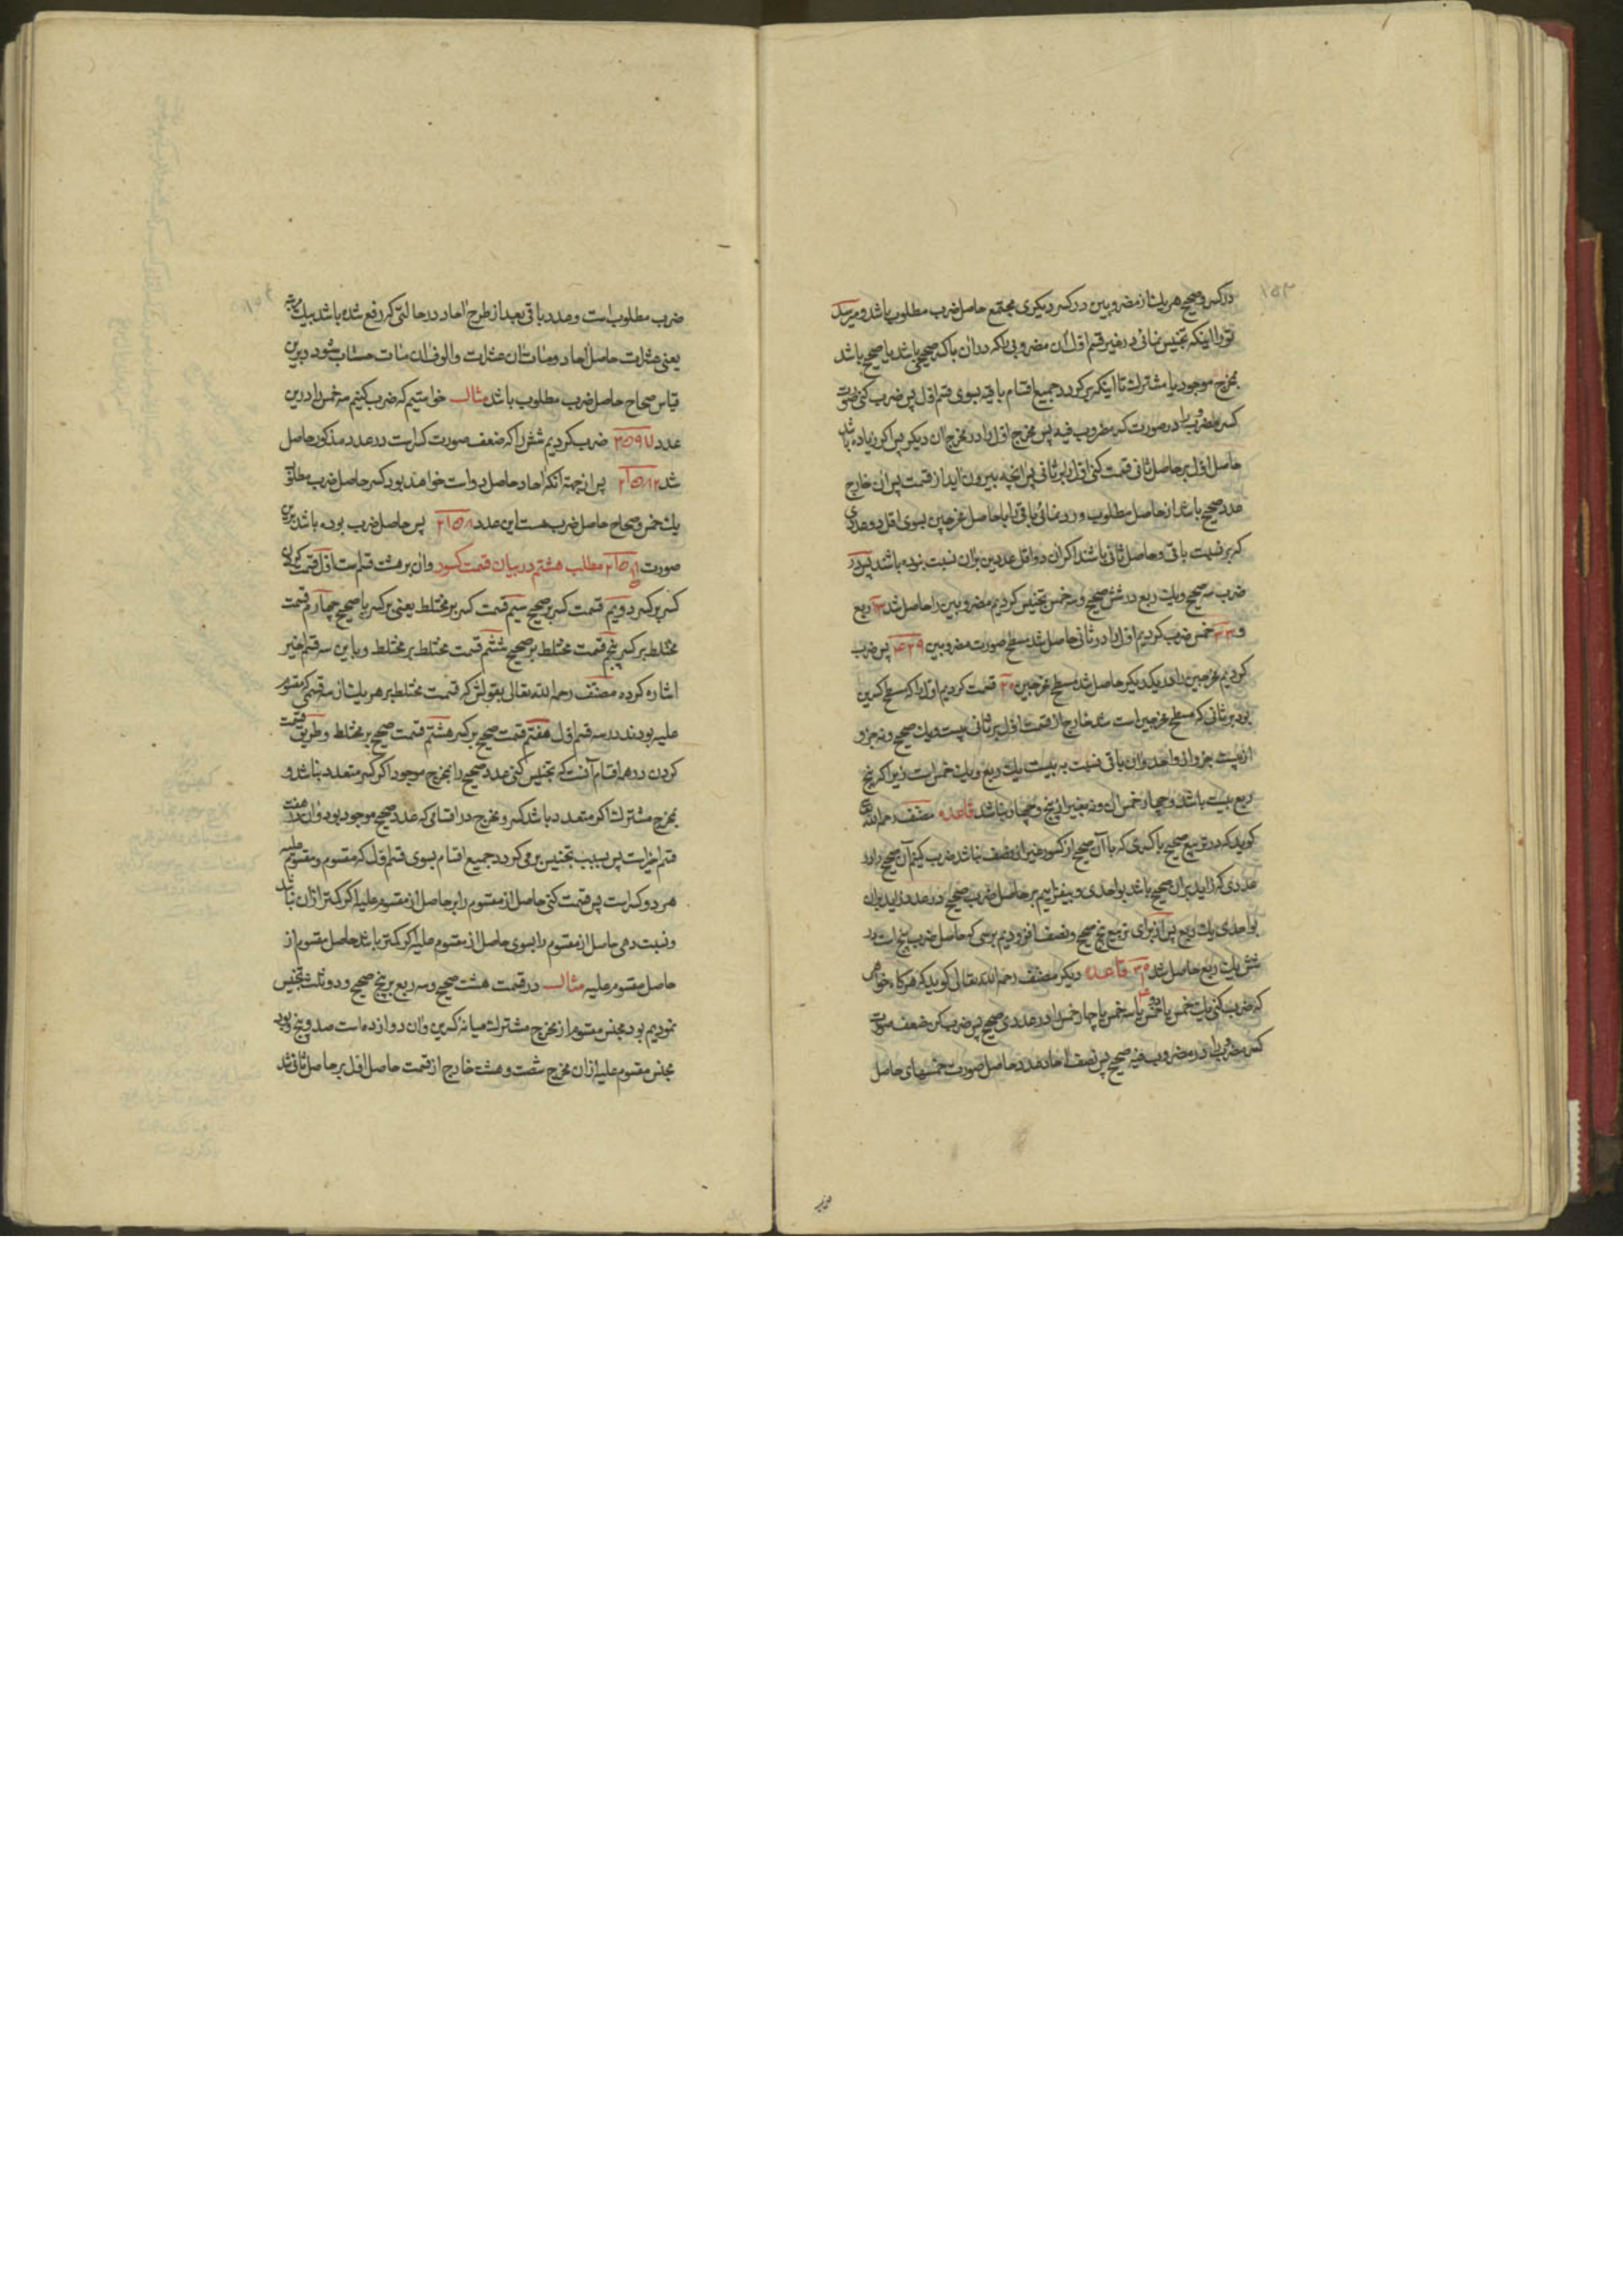 ۱۵۳
در کسر و صحیح هر یک از مضروبین در کسر دیگری مجتمع حاصل ضرب مطلوب باشد و میرسد
تو را اینکه تجنیس نمائی در غیر قسم اول آن مضروبی را که در آن با کسر صحیحی باشد یا صحیح باشد
بمخرج موجود یا مشترک تا اینکه برگردد جمیع اقسام باقیه بسوی قسم اول پس ضرب کنی صورت
کسر مضروب را در صورت کسر مضروب فیه پس مخرج اول را در مخرج آن دیگر پس اگر زیاده باشد
حاصل اول بر حاصل ثانی قسمت کنی اول را بر ثانی پس آنچه بیرون آید از قسمت پس آن خارج
عدد صحیح باشد از حاصل مطلوب و رد نمائی باقی را با حاصل مخرجین بسوی اقل دو عددی
که بر نسبت باقی و حاصل ثانی باشد اگر آن دو اقل عددین بر آن نسبت نبوده باشد پس در
ضرب سه صحیح و یک ربع در شش صحیح و سه خمس تجنیس کردیم مضروبین را حاصل شد ۱۳ ربع
و ۳۳ خمس ضرب کردیم اول را در ثانی حاصل شد مسطح صورت مضروبین ۴۲۹ پس ضرب
کردیم مخرجین را در یکدیگر حاصل شد مسطح مخرجین ۲۰ قسمت کردیم اول را که مسطح کسرین
بود بر ثانی که مسطح مخرجین است شد خارج از قسمت اول بر ثانی بیست و یک صحیح و نه جزو
از بیست جزو از واحد و آن باقی نسبت به بیست یک ربع و یک خمس است زیرا که پنج
ربع بیست باشد و چهار خمس آن و نه بغیر از پنج و چهار نباشد قاعده مصنف رحمه الله
گوید که در تربیع صحیح با کسری که با آن صحیح از کسور غیر از نصف نباشد ضرب کنیم آن صحیح را در
عددی که زاید بر آن صحیح باشد بواحدی و بیفزاییم بر حاصل ضرب صحیح در عدد زاید بر آن
بواحدی یک ربع پس از برای تربیع پنج صحیح و نصف افزودیم بر سی که حاصل ضرب پنج است در
شش یک ربع حاصل شد ۳۰ قاعده دیگر مصنف رحمه الله تعالی گوید که هرگاه خواهی
که ضرب کنی یک خمس یا دو خمس یا سه خمس یا چهار خمس را در عددی صحیح پس ضرب کن ضعف صورت
کسر مضروب را در مضروب فیه صحیح پس نصف احاد عدد حاصل صورت خمسهای حاصل
ضرب مطلوب است و عدد باقی بعد از طرح احاد در حالتی که رفع شده باشد بیک مرتبه
یعنی عشرات حاصل احاد و مئات آن عشرات و الوف آن مئات حساب شود و برین
قیاس صحاح حاصل ضرب مطلوب باشد مثال خواستیم که ضرب کنیم سه خمس را درین
عدد ۳۵۹۷ ضرب کردیم شش را که ضعف صورت کسر است در عدد مذکور حاصل
شد ۲۱۵۸۲ پس از جهة آنکه احاد حاصل دو است خواهد بود کسر حاصل ضرب مطلوب
یک خمس و صحاح حاصل ضرب هست این عدد ۲۱۵۸ پس حاصل ضرب بوده باشد برین
صورت ۲۱۵۸ مطلب هشتم در بیان قسمت کسور و آن بر هشت قسم است اول قسمت کردن
کسر بر کسر دویم قسمت کسر بر صحیح سیم قسمت کسر بر مختلط یعنی بر کسر با صحیح چهارم قسمت
مختلط بر کسر پنجم قسمت مختلط بر صحیح ششم قسمت مختلط بر مختلط و باین سه قسم اخیر
اشاره کرده مصنف رحمه الله تعالی بقولش که قسمت مختلط بر هر یک از سه قسمی که مقسوم
علیه بودند در سه قسم اول هفتم قسمت صحیح بر کسر هشتم قسمت صحیح بر مختلط و طریق قسمت
کردن در همه اقسام آنست که تجنیس کنی عدد صحیح را بمخرج موجود اگر کسر متعدد نباشد و
بمخرج مشترک اگر متعدد باشد کسر و مخرج در اقسامی که عدد صحیح موجود بود و آن هفت
قسم اخیر است پس بسبب تجنیس برمی گردد جمیع اقسام بسوی قسم اول که مقسوم و مقسوم علیه
هر دو کسر است پس قسمت کنی حاصل از مقسوم را بر حاصل از مقسوم علیه اگر کمتر از آن نباشد
و نسبت دهی حاصل از مقسوم را بسوی حاصل از مقسوم علیه اگر کمتر باشد حاصل مقسوم از
حاصل مقسوم علیه مثال در قسمت هشت صحیح و سه ربع بر پنج صحیح و دو ثلث تجنیس
نمودیم بود مجنس مقسوم از مخرج مشترک میانه کسرین و آن دوازده است صد و پنج و بود
مجنس مقسوم علیه از آن مخرج شصت و هشت خارج از قسمت حاصل اول بر حاصل ثانی شد